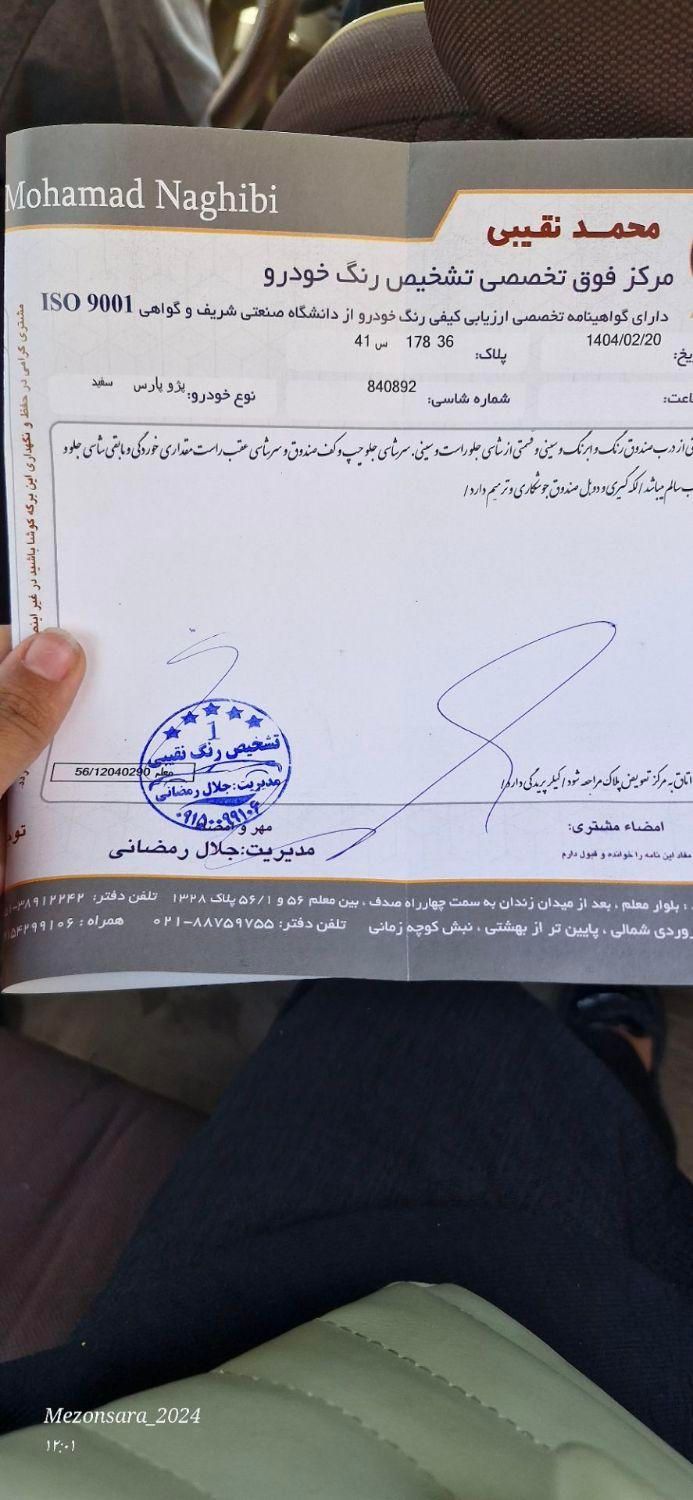 Mohamad Naghibi
محمد نقیبی
مرکز فوق تخصصی تشخیص رنگ خودرو
دارای گواهینامه تخصصی ارزیابی کیفی رنگ خودرو از دانشگاه صنعتی شریف و گواهی ISO 9001
1404/02/20
پلاک: 36 178 س 41
شماره شاسی: 840892
نوع خودرو: پژو پارس سفید
از درب صندوق رنگ و ابرنگ و سینی و قسمتی از شاسی جلو راست و سینی. سرشاسی جلو چپ و کف صندوق و سرشاسی عقب راست مقداری خوردگی و مابقی شاسی جلو و
سالم میباشد / لکه گیری و دوبل صندوق جوشکاری و ترمیم دارد /
مشتری گرامی در حفظ و نگهداری این برگه کوشا باشید در غیر
تشخیص رنگ نقیبی
معلم 56/12040290
مدیریت: جلال رمضانی
۰۹۱۵۰۰۹۹۱۰۶
اتاق به مرکز تعویض پلاک مراجعه شود / کیلر پریدگی دارد /
امضاء مشتری:
مهر و امضاء
مفاد این نامه را خوانده و قبول دارم
مدیریت: جلال رمضانی
: بلوار معلم ، بعد از میدان زندان به سمت چهارراه صدف ، بین معلم ۵۶ و ۵۶/۱ پلاک ۱۳۲۸ تلفن دفتر: ۳۸۹۱۲۲۴۲
شمالی ، پایین تر از بهشتی ، نبش کوچه زمانی تلفن دفتر: ۸۸۷۵۹۷۵۵-۰۲۱ همراه :
Mezonsara_2024
۱۲:۰۱